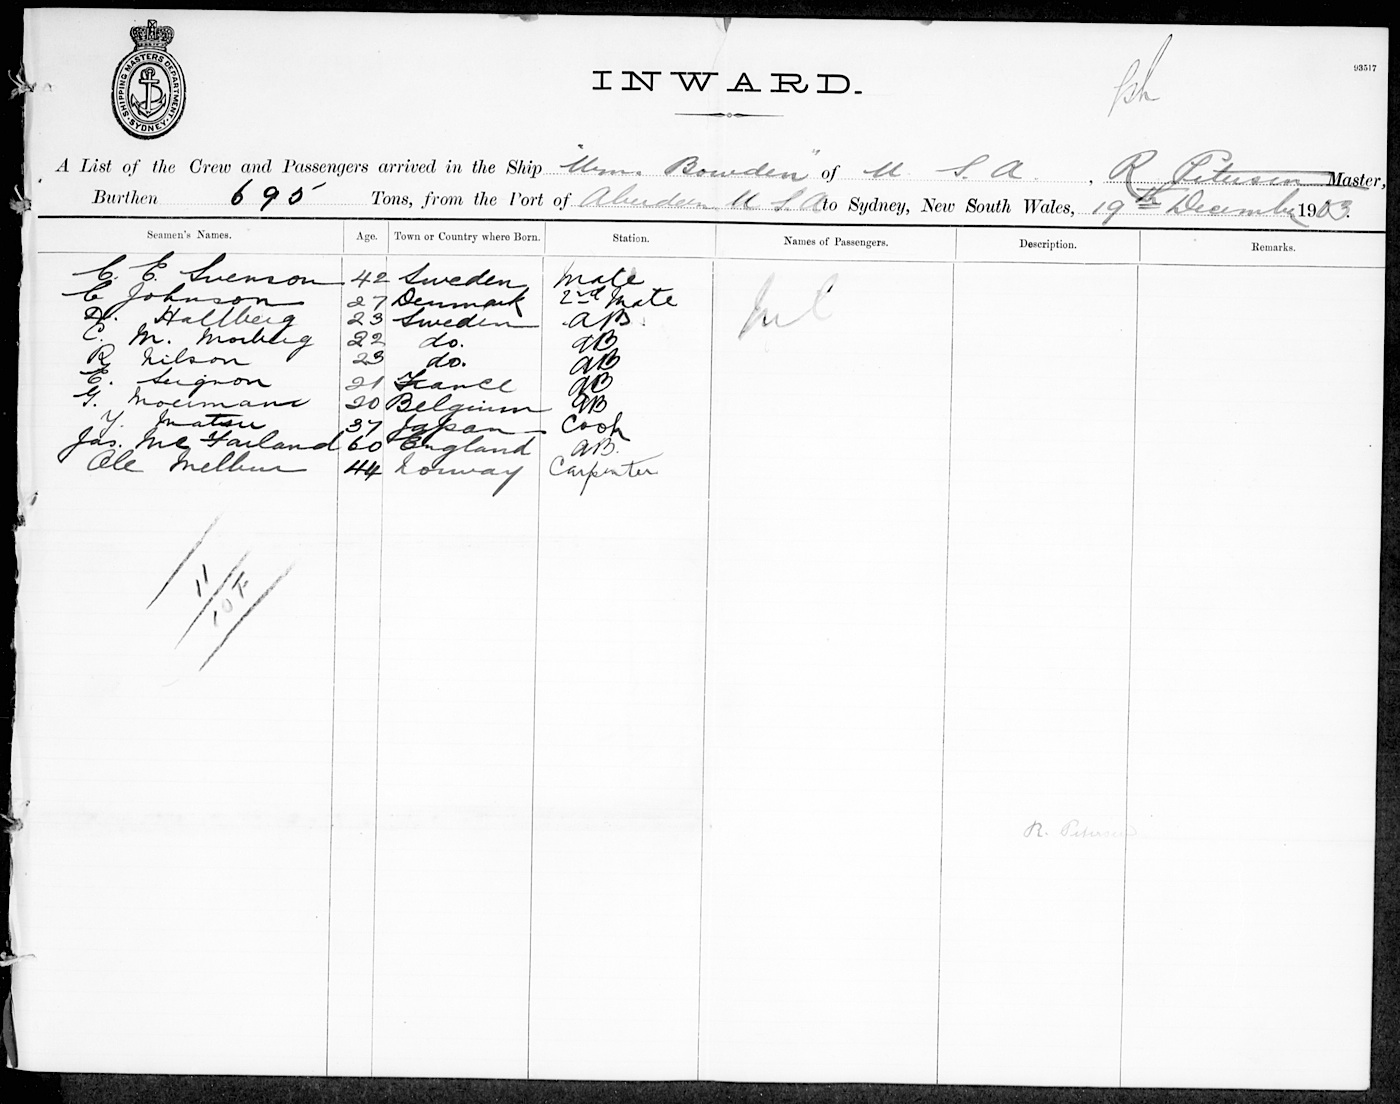 SHIPPING MASTERS DEPARTMENT. SYDNEY.
INWARD.
93517
A List of the Crew and Passengers arrived in the Ship "Wm. Bowden" of U. S. A. , R Petersen Master,
Burthen 695 Tons, from the Port of Aberdeen U S A to Sydney, New South Wales, 19th December 1903.
Seamen's Names. Age. Town or Country where Born. Station. Names of Passengers. Description. Remarks.
C. E. Svenson 42 Sweden Mate
C Johnson 27 Denmark 2nd Mate
Hallberg 23 Sweden AB.
C. M. Morberg 22 do. AB
R Nilson 23 do. AB
E. Seignon 21 France AB
G. Moermans 20 Belgium AB
Y. Matsu 37 Japan Cook
Jas. McFarland 60 England AB.
Ole Melbur 44 Norway Carpenter
Nil
11
R. Petersen